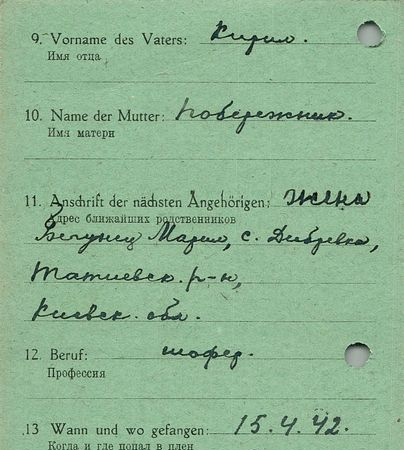 9. Vorname des Vaters: Кирил.
Имя отца
10. Name der Mutter: Побережник.
Имя матери
11. Anschrift der nächsten Angehörigen: жена
Адрес ближайших родственников
Бегунец Мария, с. Дибревка,
Тати​евск. р-н,
Киевск. обл.
12. Beruf: шофер.
Профессия
13 Wann und wo gefangen: 15.4.42.
Когда и где попал в плен